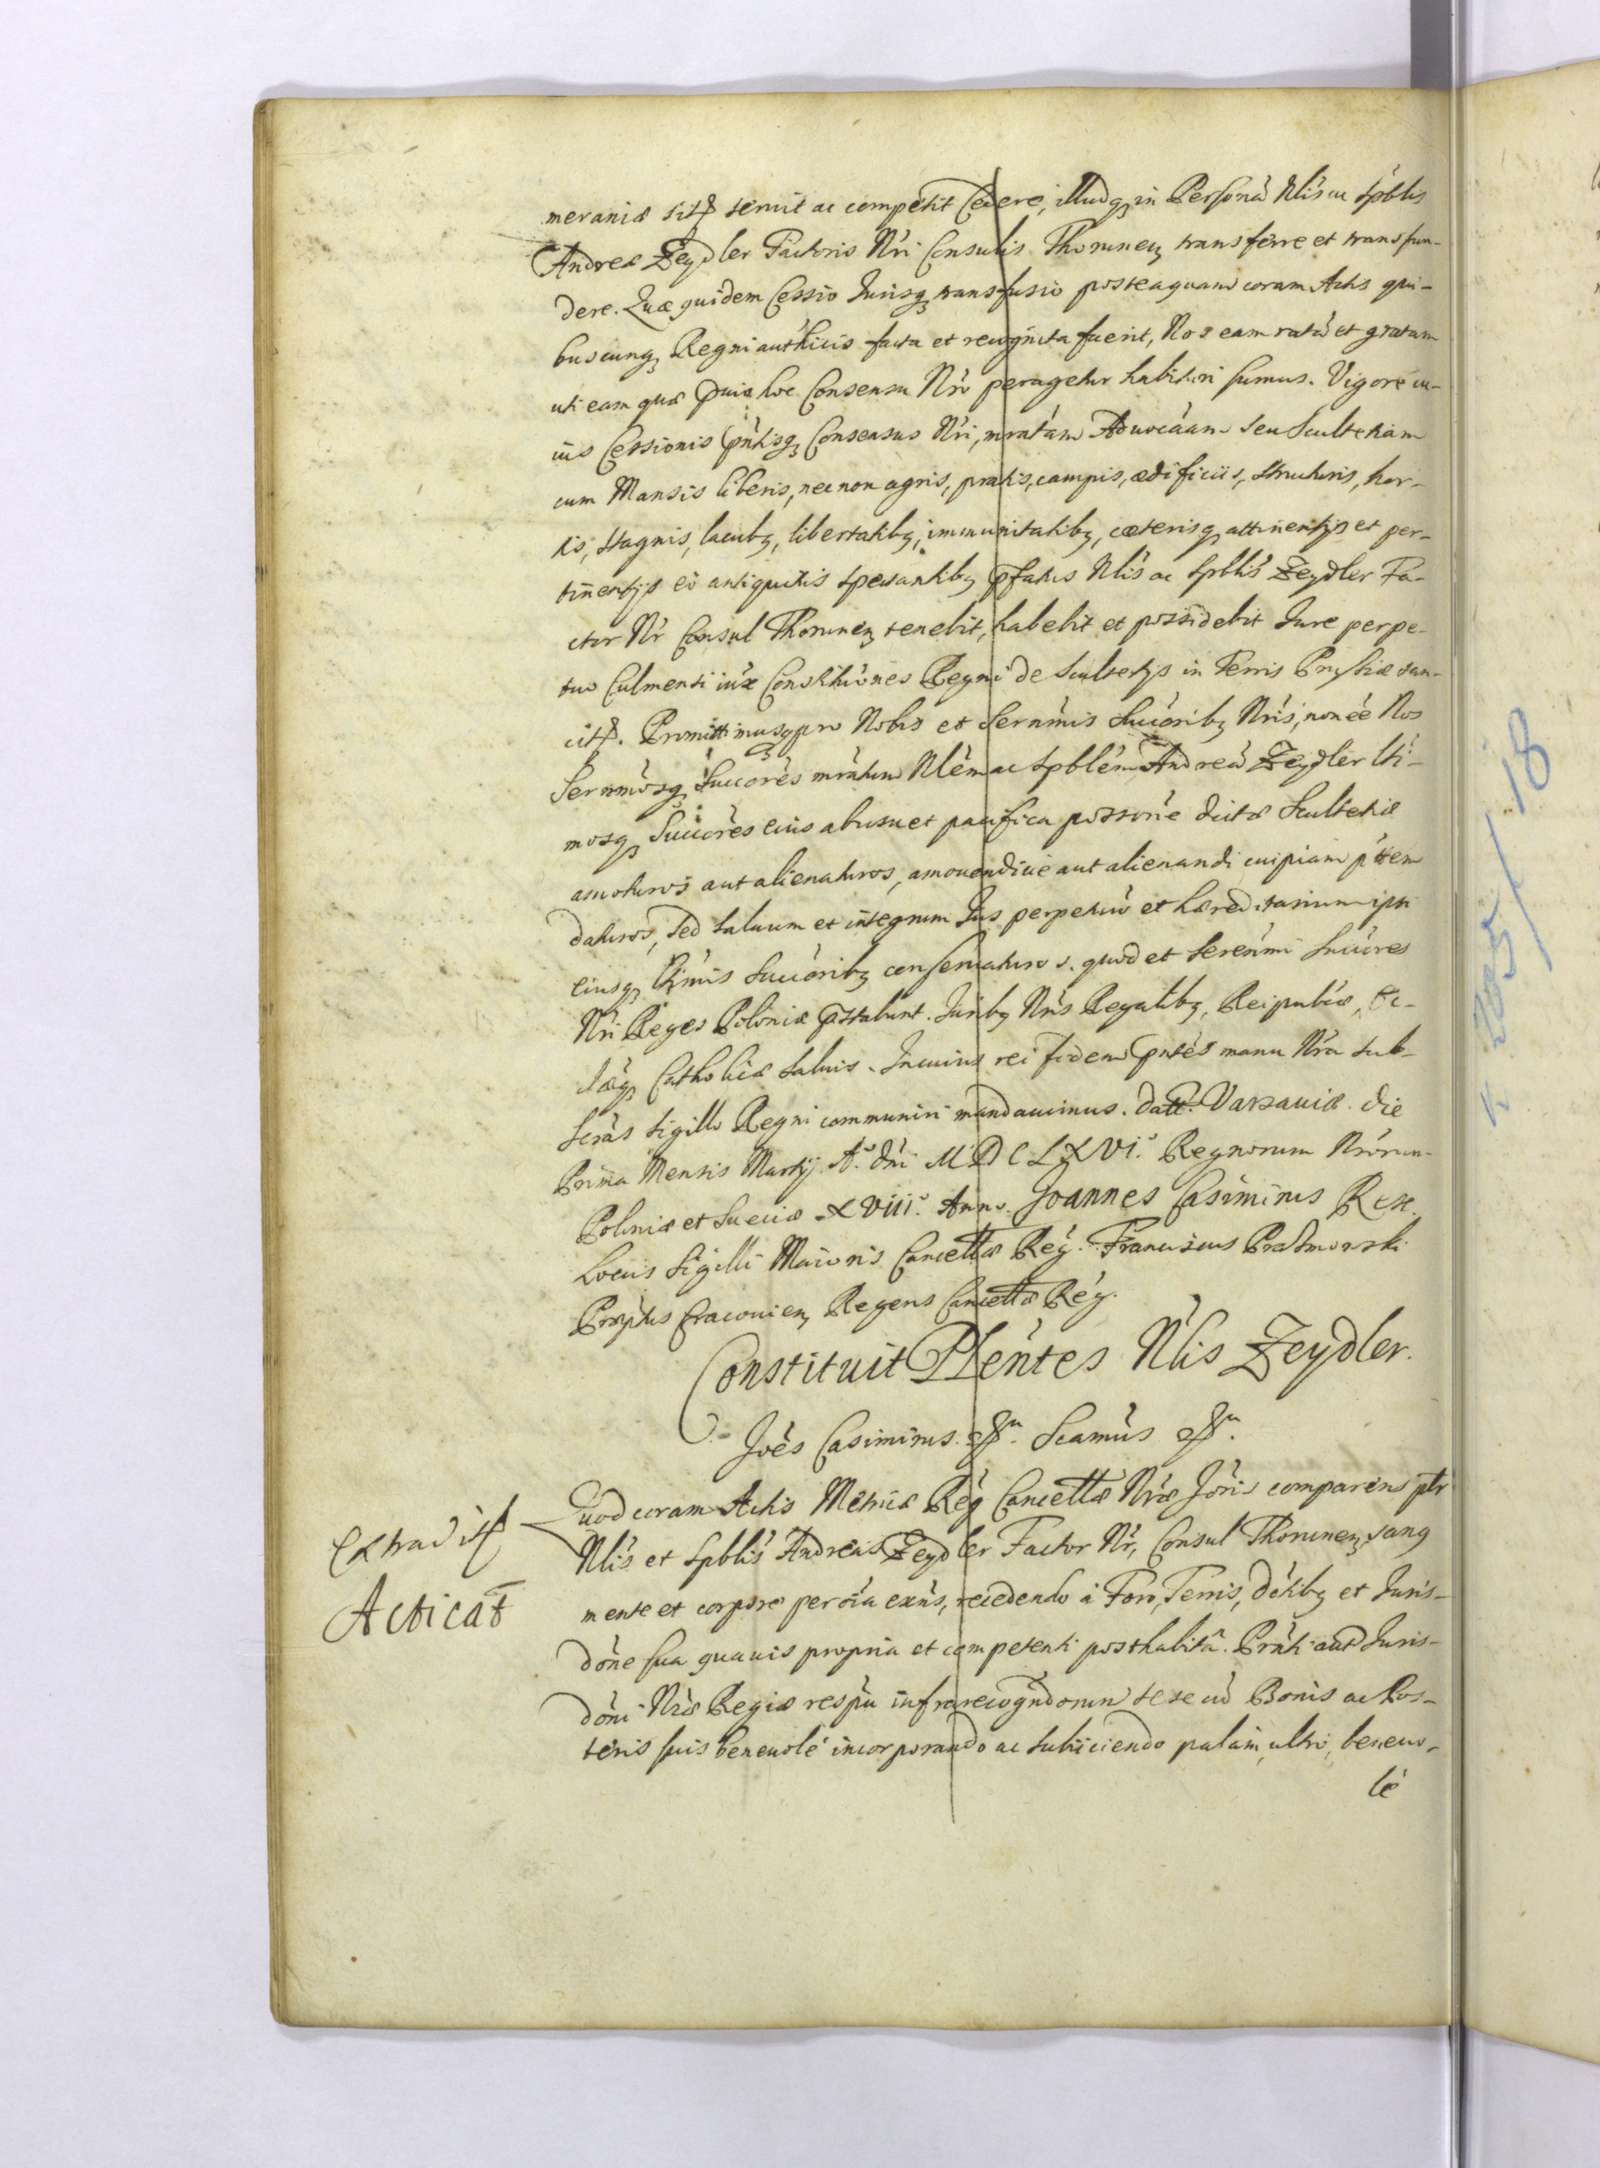 meraniæ sit seruit ac competit Cedere, illudq in Personã Nlis ac Spblis
Andreæ Zeydler Factoris Nri Consulis Thorunen transferre et transfun-
dere. Quæ quidem Cessio Jurisq transfusio posteaquam coram Actis qui-
buscunq Regni authcis facta et recognita fuerit, Nos eam ratã et gratam
uti eam quæ hoc Consensu Nro peragetur habituri sumus. Vigore cu-
ius Cessionis pntisq Consensus Nri, mratam Aduocaam seu Scultetiam
cum Mansis liberis, nec non agris, pratis, campis, ædificiis, structuris, hor-
tis, stagnis, lacubq, libertatibq, immunitatibq, cæterisq attinentijs et per-
tinentijs ei antiquitus spectantibq pfatus Nlis ac Spblis Zeydler Fa-
ctor Nr Consul Thorunen tenebit, habebit et possidebit Jure perpe-
tuo Culmensi iux Constituiones Regni de Scultetijs in Terris Prussiæ san-
cit. Promittimusq pro Nobis et Sernmis Succoribq Nris, non ee Nos
Sernmosq Succores mratum Nlem ac Spblem Andreã Zeydler lti-
mosq Succores eius ab usu et pacifica possone dictæ Scultetiæ
amoturos aut alienaturos, amouendiue aut alienandi cuipiam pttem
daturos, sed saluum et integrum Jus perpetuũ et hæreditarium ipsi
eiusq ltimis Succoribq conseruaturos. quod et Serenmi Succores
Nri Reges Poloniæ pstabunt. Juribq Nris Regalibq, Reipublcæ, Ec-
læq Catholicæ saluis. In cuius rei fidem pntes manu Nra sub-
scras Sigillo Regni communiri mandauimus. Datt. Varsauiæ. die
Prima Mensis Martij Ao. dni MDCLXVI. Regnorum Nrorum
Poloniæ et Sueciæ XVIII. Anno. Joannes Casimirus Rex.
Locus Sigilli Maioris Cancellæ Reg. Franciscus Prazmowski
Præptus Cracouien Regens Cancellæ Reg.
Constituit Plentes Nlis Zeydler.
Joes Casimirus. Scamus
Quod coram Actis Metricæ Reg Cancellæ Nræ Joris comparens ptr
Nlis et Spblis Andreas Zeydler Factor Nr, Consul Thorunen, sang
mente et corpore per oia exns, recedendo à Foro, Terris, Dctibq et Juris-
done sua quauis propria et competenti posthabitâ. Prnti aut Juris-
doni Nræ Regiæ respu infrarecogndorum sese cũ Bonis ac Pos-
teris suis beneuolè incorporando ac subiiciendo palàm, ultrò, beneuo-
lè
Extradit
Acticat
18